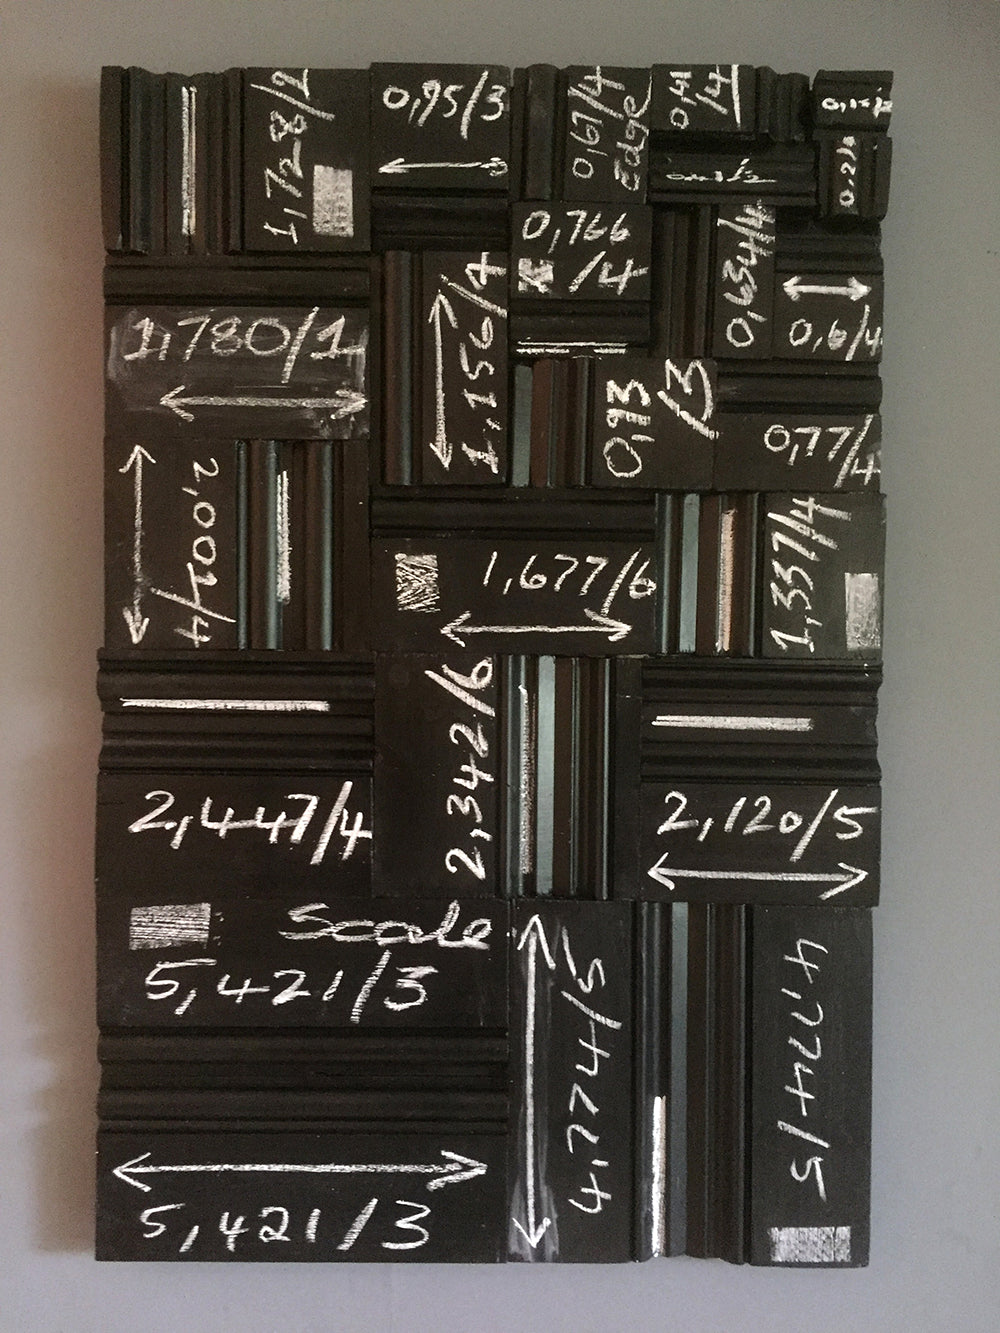 1,728/2
0,95/3
0,67/4
Edge
0,41
/4
0,766
/4
0,634/4
0,6/4
1,780/1
1,156/4
0,93
/3
0,77/4
2,001/4
1,677/6
1,357/4
2,447/4
2,342/6
2,120/5
Scale
5,421/3
4,774/5
4,774/5
5,421/3